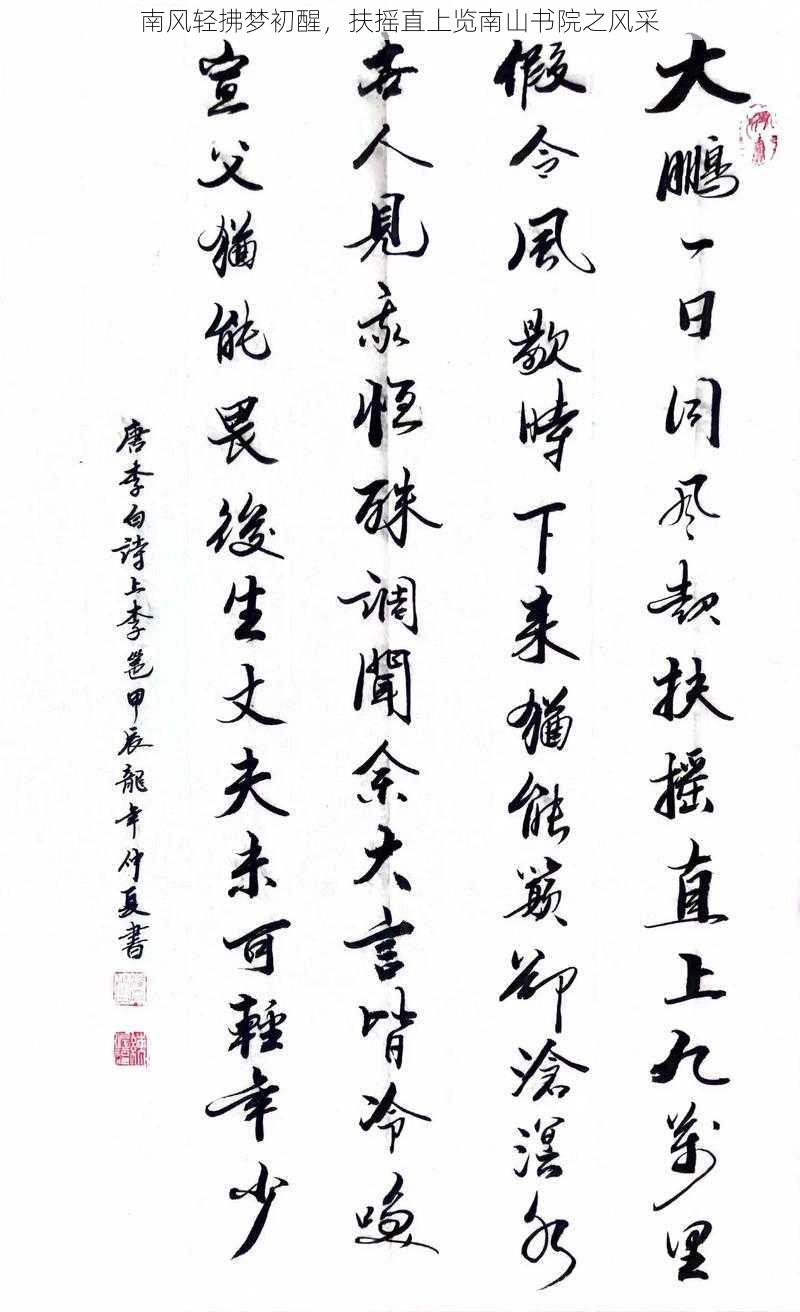 南风轻拂梦初醒，扶摇直上览南山书院之风采
大鵬一日同风起扶摇直上九萬里
假令風歇時下来猶能簸却滄溟水
世人見我恒殊調聞余大言皆冷笑
宣父猶能畏後生丈夫未可輕年少
唐李白詩上李邕甲辰龍年仲夏書